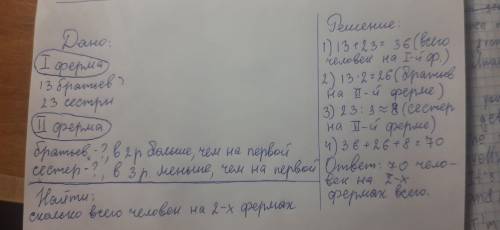 Дано:
I ферма
13 братьев
23 сестры
II ферма
братьев -?, в 2 р. больше, чем на первой
сестер -?, в 3 р. меньше, чем на первой
Найти:
сколько всего человек на 2-х фермах
Решение:
1) 13+23= 36 (всего
человек на I-й ф.)
2) 13·2=26 (братьев
на II-й ферме)
3) 23:3≈8 (сестер
на II-й ферме)
4) 36+26+8=70
Ответ: 70 чело-
век на 2-х
фермах всего.